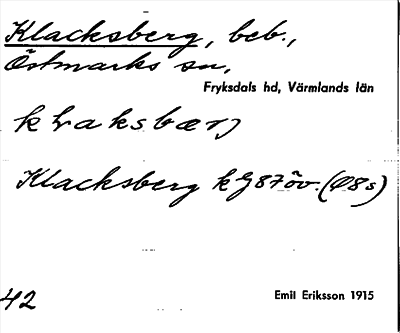 Klacksberg, beb.,
Östmarks sn,
Fryksdals hd, Värmlands län
Klacksberg kg 87 öv. (Ø8s)
42
Emil Eriksson 1915